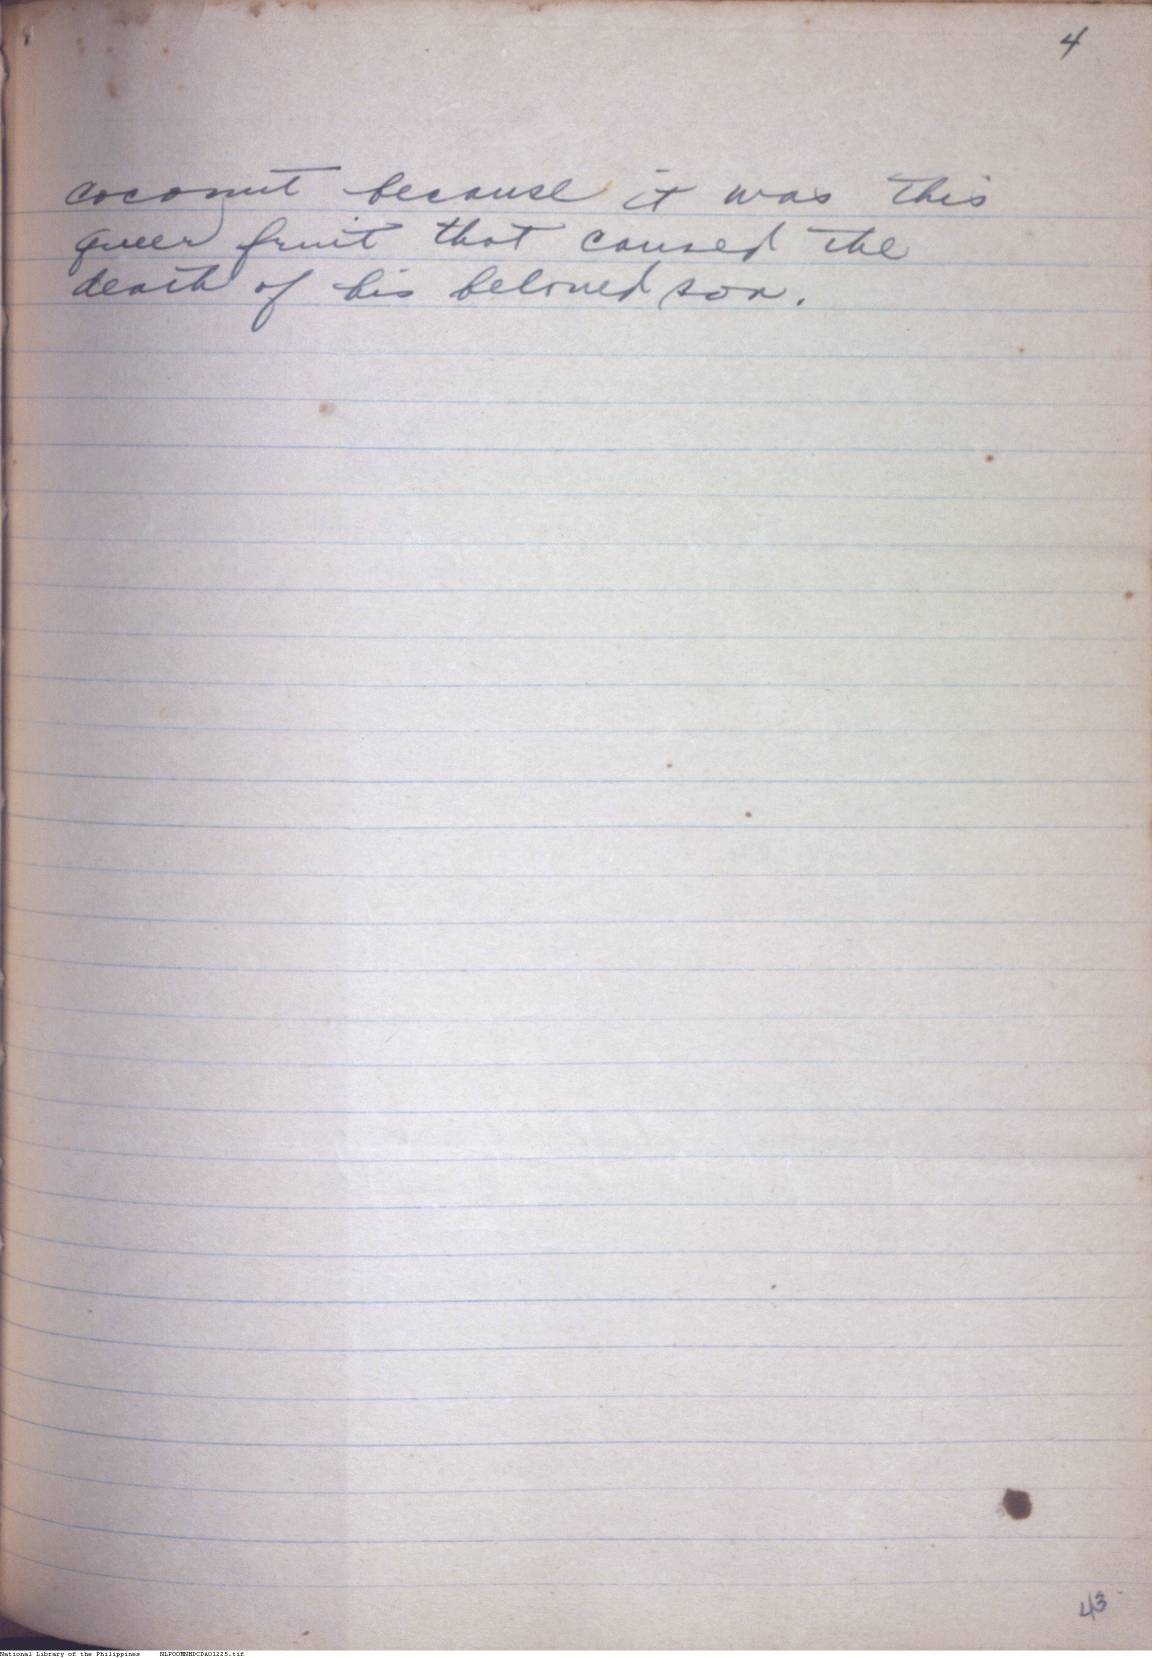 4
coconut because it was this
queer fruit that caused the
death of his beloved son.
43
National Library of the Philippines NLPOOMNHDCDA01225.tif